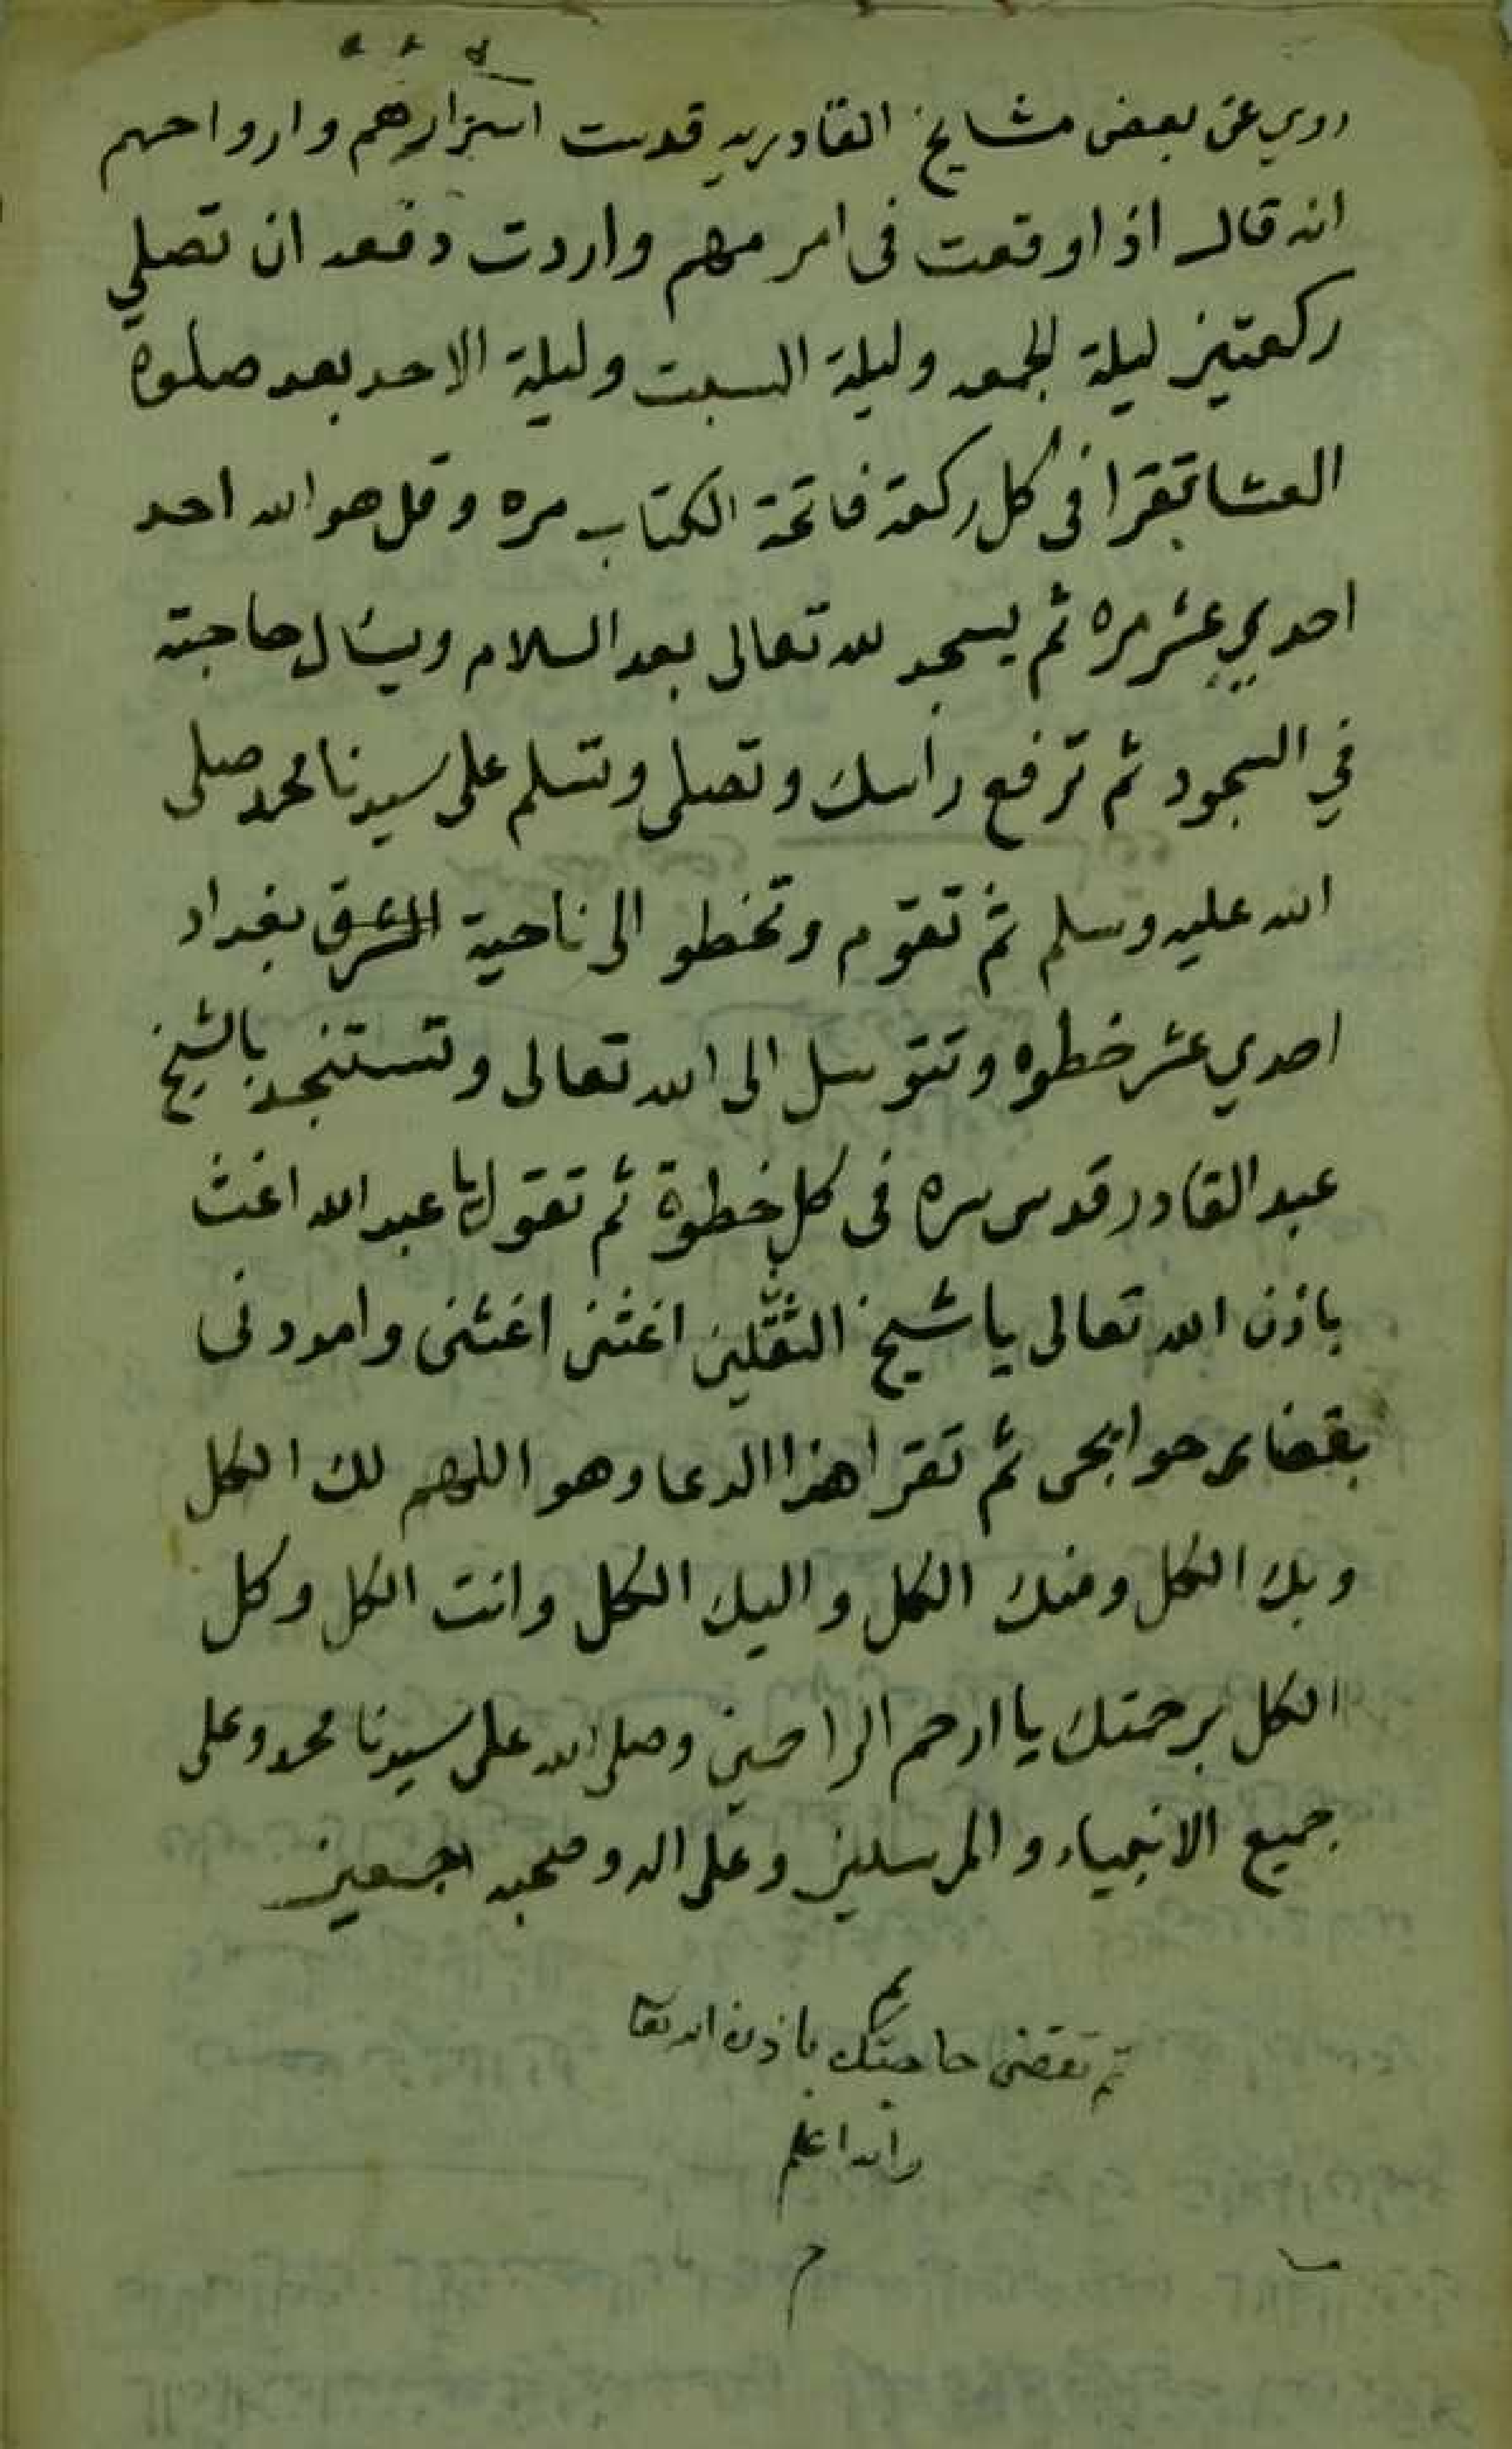 روي عن بعض مشايخ القادريه قدست اسرارهم وارواحهم
انه قال اذا وقعت في امر مهم واردت دفعه ان تصلي
ركعتين ليلة الجمعه وليلة السبت وليلة الاحد بعد صلوة
العشا تقرا في كل ركعة فاتحة الكتاب مره وقل هو الله احد
احدي عشر مره ثم يسجد لله تعالى بعد السلام ويسال حاجته
في السجود ثم ترفع رأسك وتصلى وتسلم على سيدنا محمد صلى
الله عليه وسلم ثم تقوم وتخطو الى ناحية الشرق بغداد
احدي عشر خطوه وتتوسل الى الله تعالى وتستنجد بالشيخ
عبد القادر قدس سره في كل خطوة ثم تقول يا عبد الله اغث
باذن الله تعالى يا شيخ الثقلين اغثنى اغثنى وامددنى
بقضاء حوايجى ثم تقرا هذا الدعا وهو اللهم لك الكل
وبك الكل ومنك الكل واليك الكل وانت الكل وكل
الكل برحمتك يا ارحم الراحمين وصلى الله على سيدنا محمد وعلى
جميع الانبياء والمرسلين وعلى اله وصحبه اجمعين
ثم تقضى حاجتك باذن الله تعا
والله اعلم
م